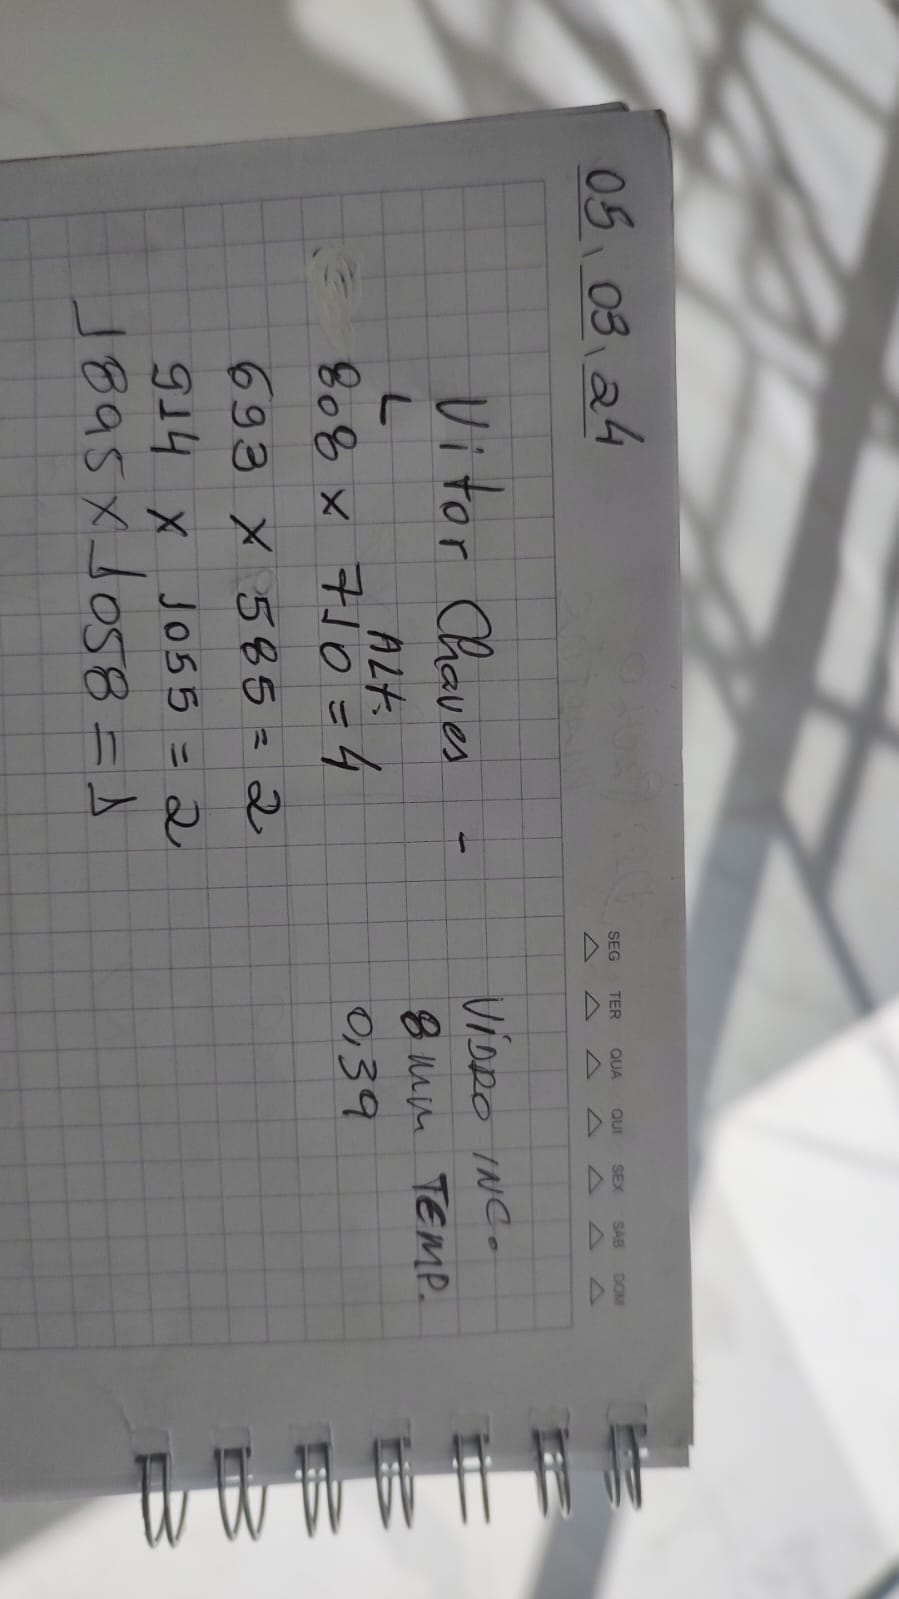 05 03 24
SEG TER QUA QUI SEX SAB DOM
Vitor Chaves -
VIDRO INC.
8 mm TEMP.
0,39
L ALt.
808 x 710 = 4
693 x 585 = 2
514 x 1055 = 2
1895 x 1058 = 1